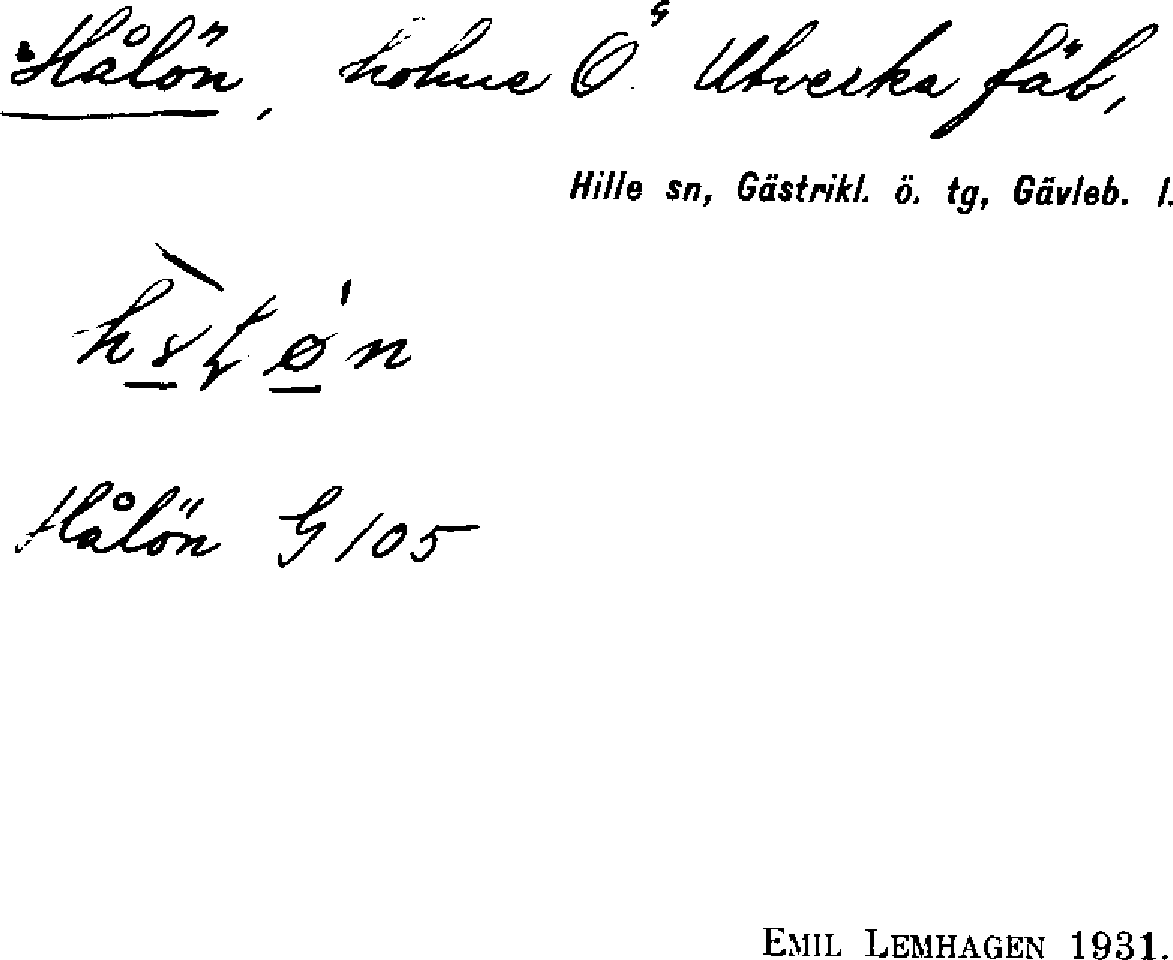 Hålön, holme Ö. Utverka fäb,
Hille sn, Gästrikl. ö. tg, Gävleb. l.
Hålön G 105
EMIL LEMHAGEN 1931.